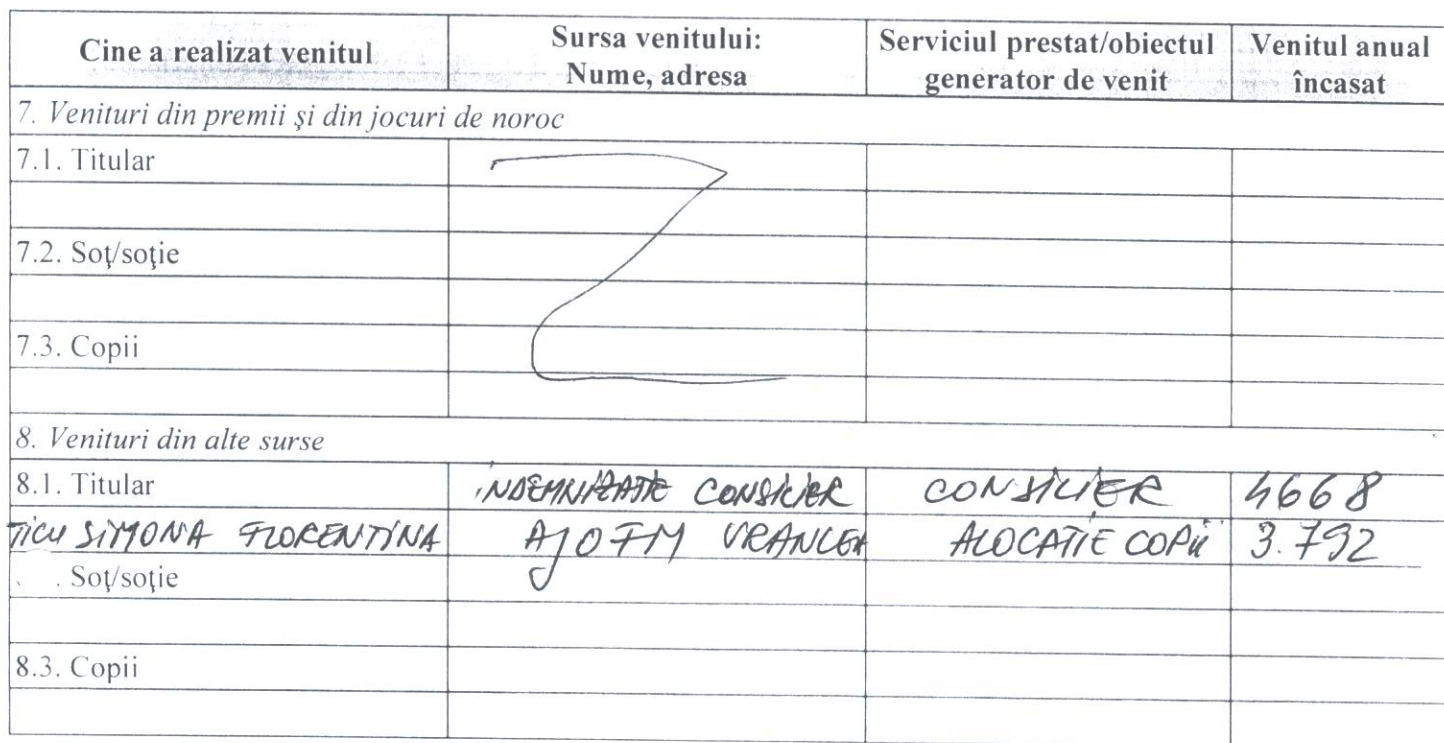 Cine a realizat venitul Sursa venitului: Nume, adresa Serviciul prestat/obiectul generator de venit Venitul anual încasat
7. Venituri din premii şi din jocuri de noroc
7.1. Titular
7.2. Soţ/soţie
7.3. Copii
8. Venituri din alte surse
8.1. Titular INDEMNIZATIE CONSILIER CONSILIER 4668
TICU SIMONA FLORENTINA AJOFM VRANCEA ALOCATIE COPII 3.792
. Soţ/soţie
8.3. Copii